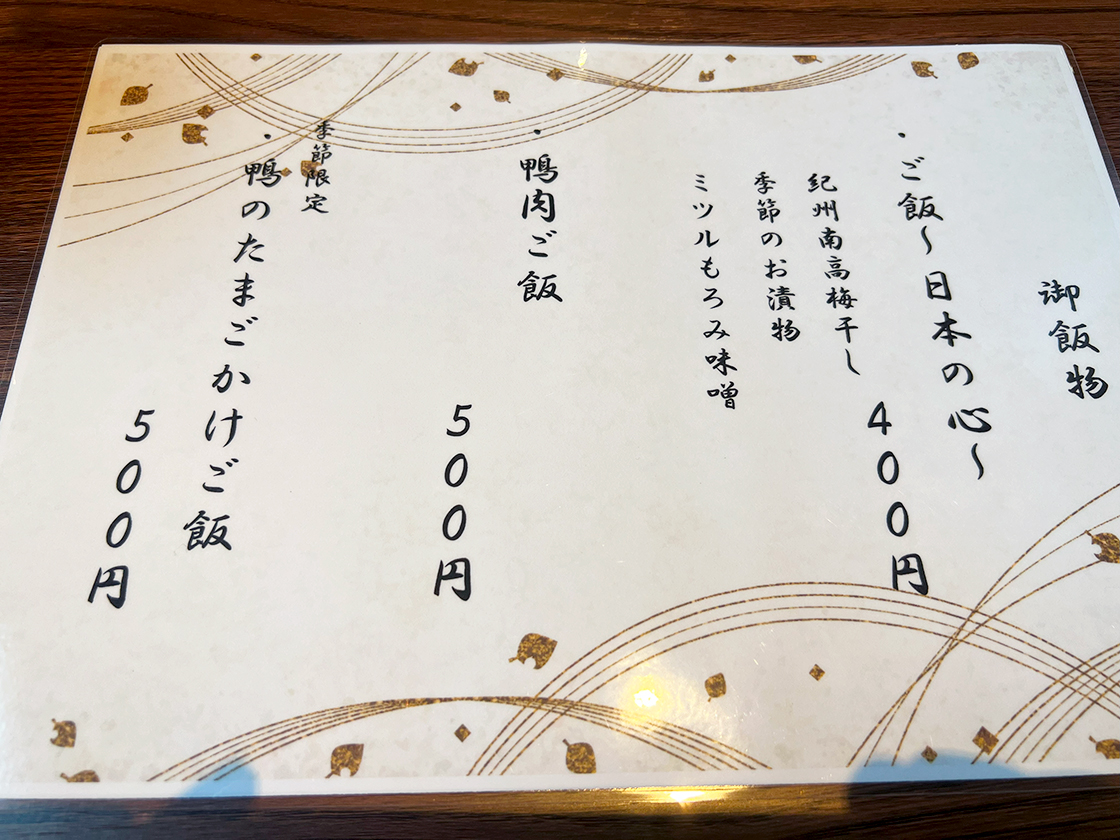 御飯物
・ご飯～日本の心～
400円
紀州南高梅干し
季節のお漬物
ミツルもろみ味噌
・鴨肉ご飯
500円
季節限定
・鴨のたまごかけご飯
500円